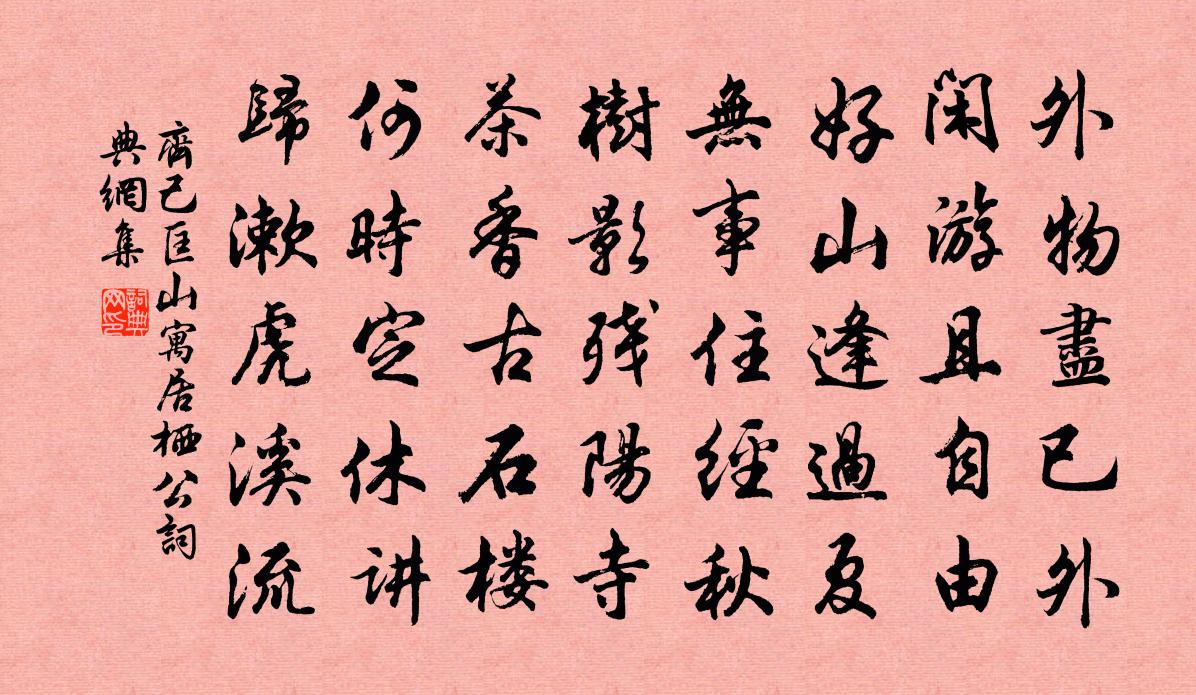 外物盡已外
閑游且自由
好山逢過夏
無事住經秋
樹影残陽寺
茶香古石楼
何時定休讲
歸漱虎溪流
齊己匡山寓居栖公詞
典網集
詞典
网印